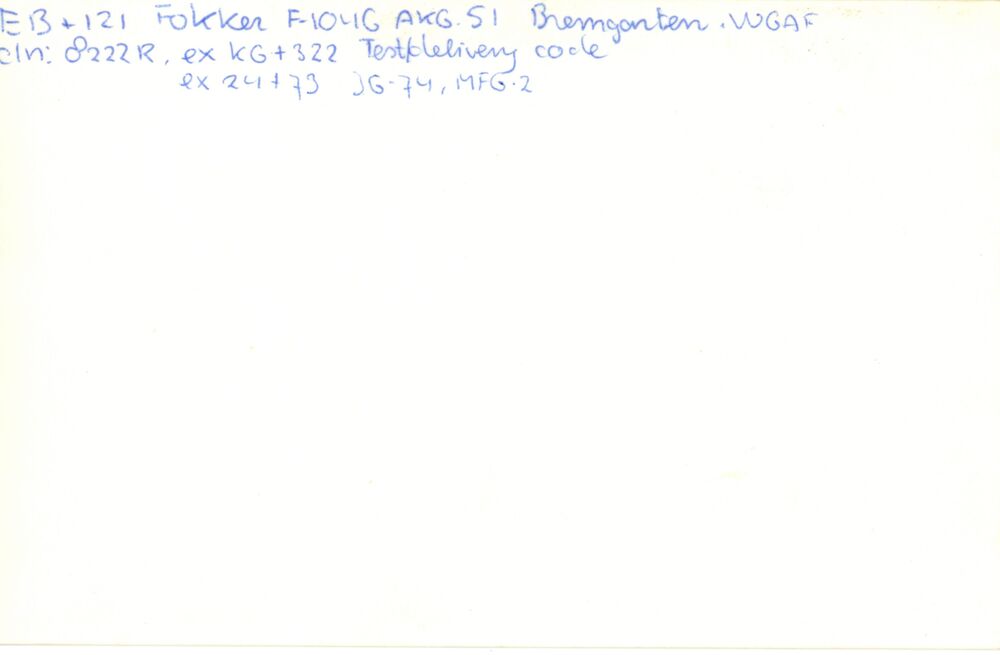 EB+121 Fokker F-104G AKG.51 Bremgarten.WGAF
c/n: 8222R, ex KG+322 Test/delivery code
ex 24+73 JG-74, MFG-2